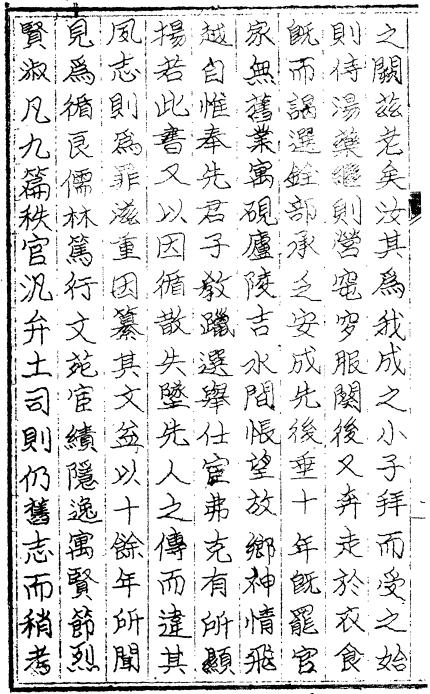 之闕茲老矣汝其為我成之小子拜而受之始
則侍湯藥繼則營窀穸服闋後又奔走於衣食
既而謁選銓部承乏安成先後垂十年既罷官
家無舊業寓硯廬陵吉水間悵望故鄉神情飛
越自惟奉先君子教躐選舉仕宦弗克有所顯
揚若此書又以因循散失墜先人之傳而違其
夙志則為罪滋重因纂其文益以十餘年所聞
見為循良儒林篤行文苑宦績隱逸寓賢節烈
賢淑凡九篇秩官汎弁土司則仍舊志而稍考